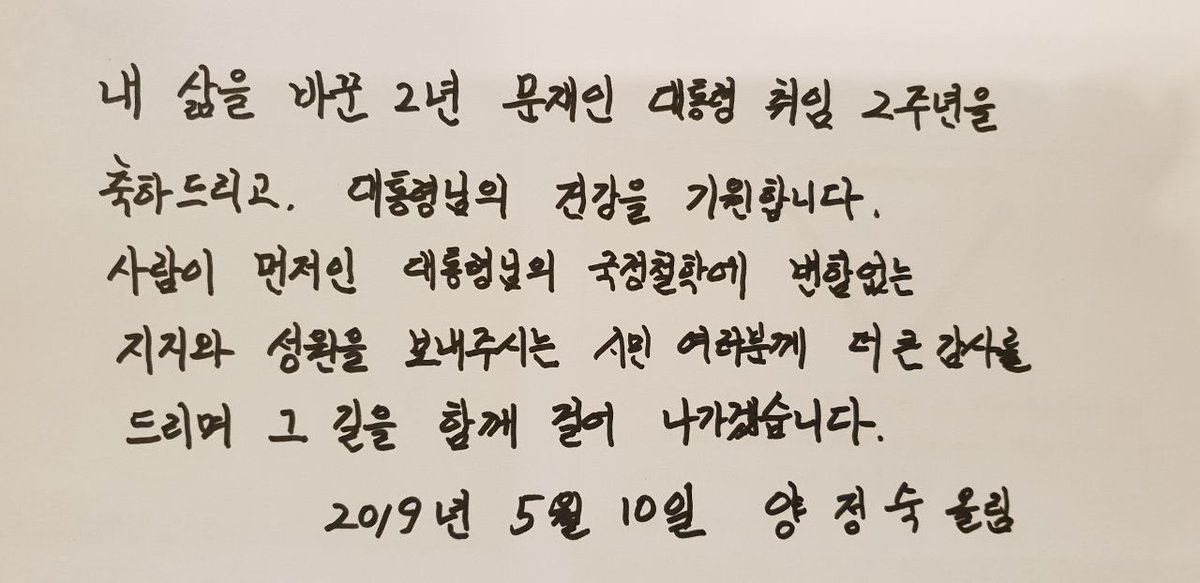 내 삶을 바꾼 2년 문재인 대통령 취임 2주년을
축하드리고. 대통령님의 건강을 기원합니다.
사람이 먼저인 대통령님의 국정철학에 변함없는
지지와 성원을 보내주시는 시민 여러분께 더 큰 감사를
드리며 그 길을 함께 걸어 나가겠습니다.
2019년 5월 10일 양정숙 올림